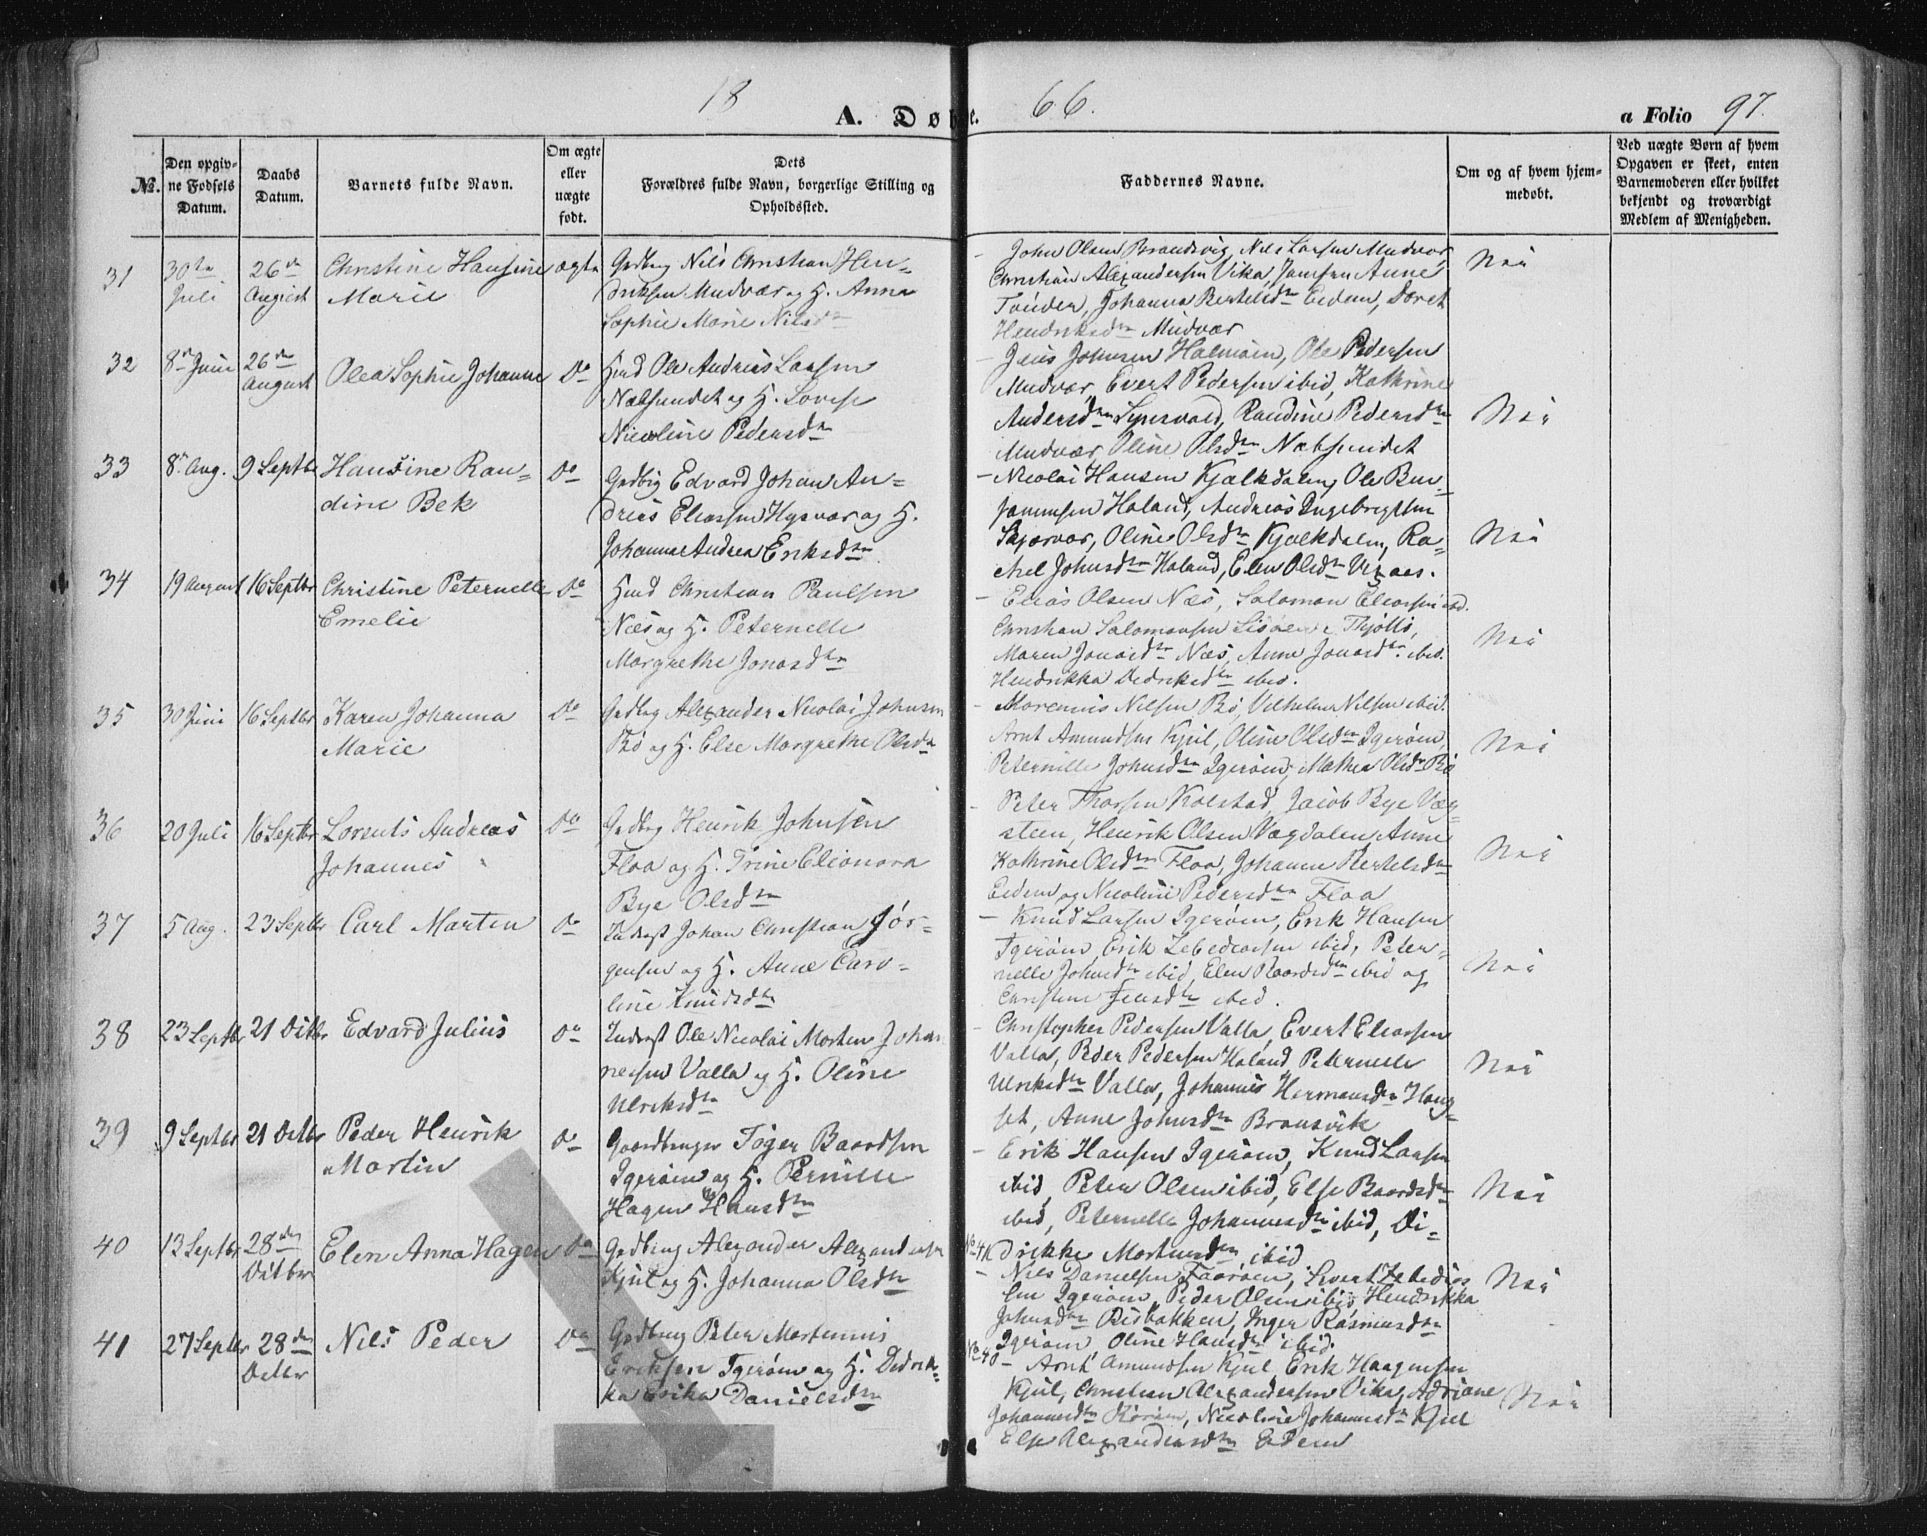 18 66.
A. Døbte. a Folio 97.
No.
Den opgiv-
ne Fødsels
Datum.
Daabs
Datum.
Barnets fulde Navn.
Om ægte
eller
uægte
født.
Dets
Forældres fulde Navn, borgerlige Stilling og
Opholdssted.
Faddernes Navne.
Om og af hvem hjem-
medøbt.
Ved uægte Børn af hvem
Opgaven er skeet, enten
Barnemoderen eller hvilket
bekjendt og troværdigt
Medlem af Menigheden.
31
30te
Juli
26de
August
Christine Hansine
Marie
ægte
Gadbrg Nils Christian Hen-
driksen Mudvær og H. Anna
Sophie Marie Nilsdtr
- John Olsen Brandsvig, Nils Larsen Mudvær
Christian Alexandersen Vika, Jomfru Anne
Tønder, Johanna Bertelsdtr Eidem, Doret
Hendriksdtr Mudvær
Nei
32
8de Juni
26de
August
Olea Sophie Johanne
Do
Hmd Ole Andreas Larsen
Næbsundet og H. Lovise
Nicoline Pedersdtr
- Jens Johnsen Halmøen, Ole Pedersen
Mudvær, Evert Pedersen ibid, Kathrine
Andersdtr Synsvold, Randine Pedersdtr
Mudvær, Oline Olsdtr Næbsundet
Nei
33
8de Aug.
9 Septbr
Hansine Ran-
dine Bek
Do
Gadbrg Edvard Johan An-
dreas Eliassen Hysvær og H.
Johanna Andrea Eriksdtr
- Nicolai Hansen Kjælkdalen, Ole Ben-
jaminsen Haland, Andreas Ingebrigtsen
Skjærvær, Oline Olsdtr Kjælkdalen, Ra-
chel Johnsdtr Haland, Elen Olsdtr
Nei
34
19 August
16 Septbr
Christine Peternelle
Emelie
Do
Hmd Christian Paulsen
Næs og H. Peternelle
Margrethe Jonasdtr
- Elias Olsen Næs, Salomon Eliassen ibd.
Christian Salomonsen Lisøen i Thjøttø,
Maren Jonasdtr Næs, Anne Jonasdtr ibid.
Hendrikka Dedriksdtr ibid.
Nei
35
30 Juni
16 Septbr
Karen Johanna
Marie
Do
Gadbrg Alexander Nicolai Johnsen
Bø og H. Else Margrethe Olsdtr
- Marenius Nilsen Bø, Vilhelm Nilsen ibid.
Arnt Amundsen Kjul, Oline Olsdtr Igerøen,
Peternille Johnsdtr Igerøen, Mathea Olsdtr Bø
Nei
36
20 Juli
16 Septbr
Lorents Andreas
Johannes
Do
Gadbrg Henrik Johnsen
Floa og H. Trine Elionora
Bye Olsdtr
- Peter Thorsen Kolstad, Jacob Bye Væg-
steen, Henrik Olsen Vægdalen, Anne
Kathrine Olsdtr Floa, Johanne Bertelsdtr
Eidem og Nicoline Pedersdtr Floa
Nei
37
5 Aug.
23 Septbr
Carl Martin
Do
Inderst Johan Christian Jør-
gensen og H. Anne Caro-
line Knudsdtr
- Knud Larsen Igerøen, Erik Hansen
Igerøen, Erik Zebedeassen ibid, Peter-
nelle Johnsdtr ibid, Elen Baardsdtr ibid og
Christine Jensdtr ibid.
Nei
38
23 Septbr
21 Octbr
Edvard Julius
Do
Inderst Ole Nicolai Morten Johan
nessen Valla og H. Oline
Ulriksdtr
- Christopher Pedersen Valla, Evert Eliassen
Valla, Peder Pedersen Haland, Peternelle
Ulriksdtr Valla, Johannes Hermansdtr Haug-
set, Anne Johnsdtr Bransvik
Nei
39
9 Septbr
21 Octbr
Peder Henrik
Martin
Do
Gaardbruger Tøger Baardsen
Igerøen og H. Pernille
Hagen Hansdtr
- Erik Hansen Igerøen, Knud Larsen
ibid, Peter Olsen ibid, Else Baardsdtr
ibid, Peternelle Johannesdtr ibid, Di-
drikke Mortensdtr ibid
Nei
40
12 Septbr
28de
Octbr
Elen Anna Hagen
Do
Gadbrug Alexander Alexandersen
Kjul og H. Johanna Olsdtr
No 41
- Nils Danielsen Faarøen, Sivert Zebedias
sen Igerøen, Peder Olsen ibid, Hendrikka
Johnsdtr Risbakken, Inger Rasmusdtr
Igerøen Oline Hansdtr ibid.
Nei
41
27 Septbr
28de
Octbr
Nils Peder
Do
Gadbrug Peter Martinus
Eriksen Igerøen og H. Dedrik-
ka Erika Danielsdtr
No 40
- Arnt Amundsen Kjul, Erik Haagensen
Kjul, Christian Alexandersen Vika, Adriane
Johannesdtr Rørøen, Nicoline Johannesdtr Kjul
Else Alexandersdtr Eidem
Nei